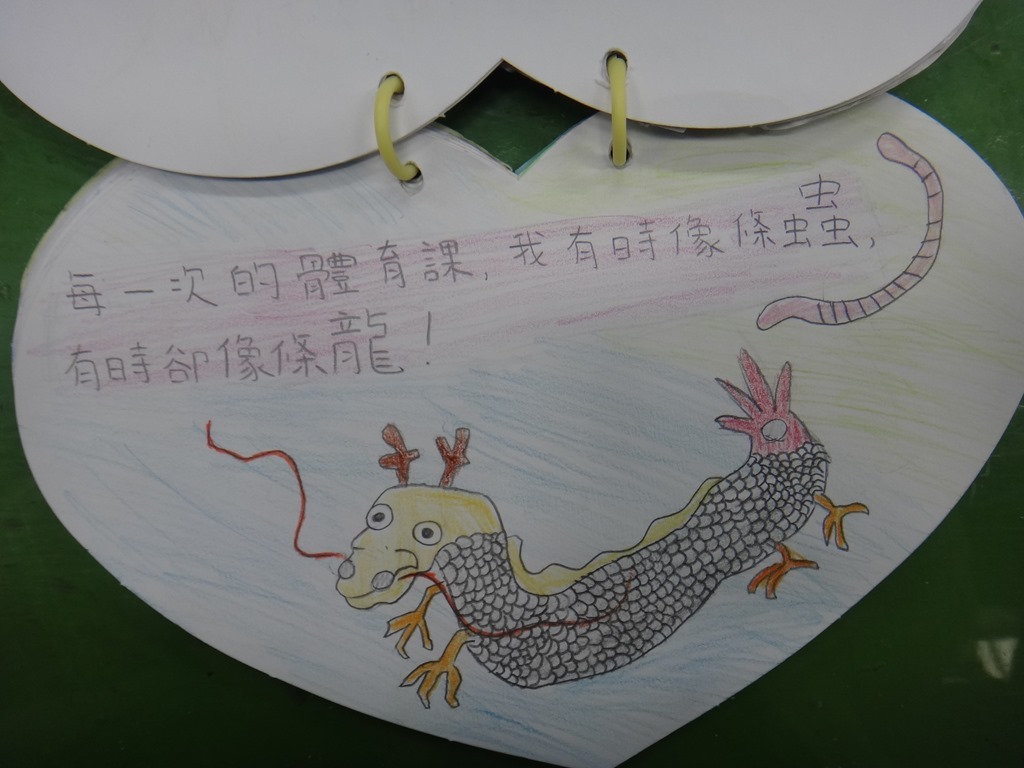 每一次的體育課，我有時像條蟲，
有時卻像條龍！